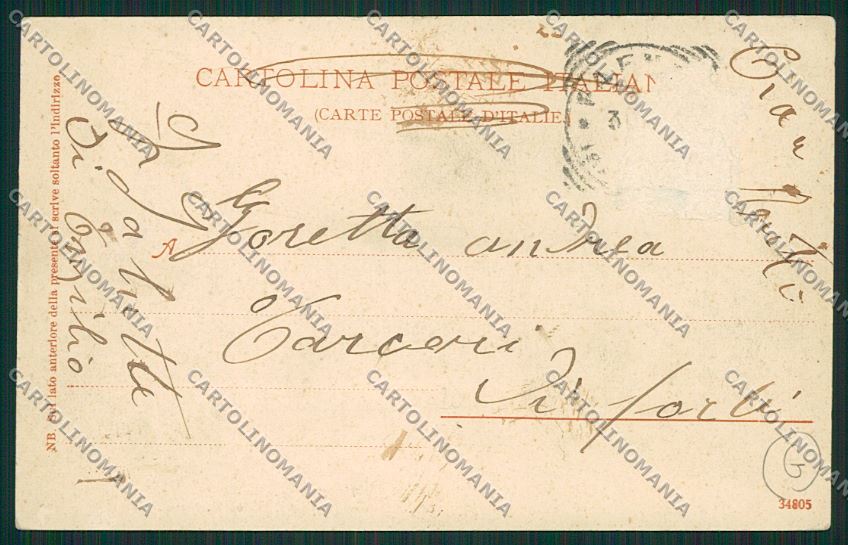 CARTOLINA POSTALE ITALIAN
(CARTE POSTALE D'ITALIE)
NB. Sul lato anteriore della presente si scrive soltanto l'indirizzo
A Goretta Andrea
Carceri
Di Forlì
Saluti
Di Emilio
34805
CARTOLINOMANIA